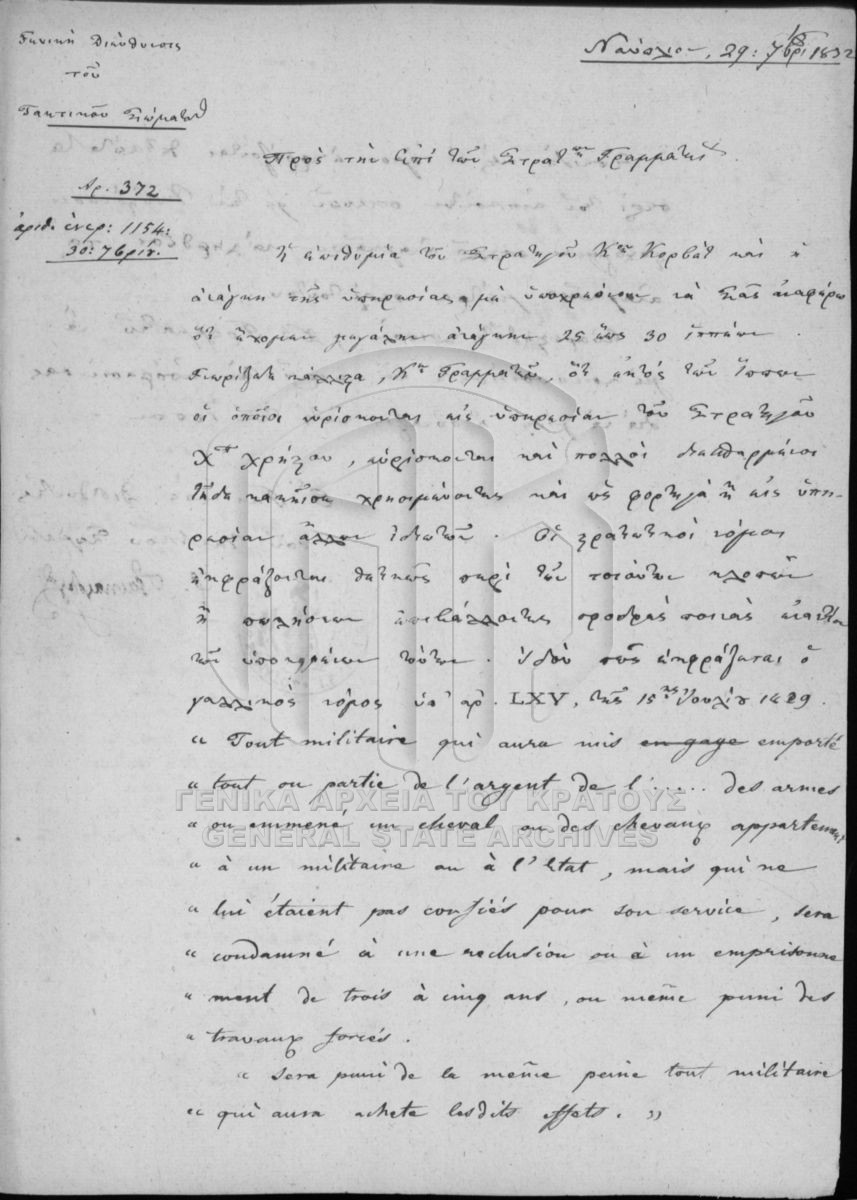 Γενική Διεύθυνσις
τοῦ
Τακτικοῦ Σώματος
Ναύπλιον, 29: 7βρί 1832
Πρὸς τὴν ἐπὶ τῶν Στρατ. Γραμματείαν.
Αρ. 372
ἀριθ. ἐνερ: 1154:
30: 7βρίου.
Ἡ ἐπιθυμία τοῦ Στρατηγοῦ Κου Κορβὲτ καὶ ἡ
ἀνάγκη τῆς ὑπηρεσίας μὲ ὑποχρεώνουν νὰ Σᾶς ἀναφέρω
ὅτι ἔχομεν μεγάλην ἀνάγκην 25 ἕως 30 ἱππέων.
Γνωρίζετε κάλλιστα, Κε Γραμματεῦ, ὅτι ἐκτὸς τῶν ἵππων
οἱ ὁποῖοι εὑρίσκονται εἰς ὑπηρεσίαν τοῦ Στρατηγοῦ
Χ χρήστου, εὑρίσκονται καὶ πολλοὶ
τῇδε κακεῖσε χρησιμεύοντες καὶ ὡς φορτηγὰ ἢ εἰς ὑπη-
ρεσίαν ἄλλων ἰδιωτῶν. Οἱ στρατιωτικοὶ νόμοι
ἐκφράζονται θετικῶς περὶ τῶν τοιούτων κλοπῶν
ἢ πωλήσεων ἐπιβάλλοντες προσθρὰς ποινὰς ἐναντίον
τῶν ὑποκειμένων τούτων. Ἰδοὺ πῶς ἐκφράζεται ὁ
γαλλικὸς νόμος ὑπ' αρ. LXV, τῆς 15ης Ἰουλίου 1829.
“ Tout militaire qui aura mis en gage emporté
“ tout ou partie de l'argent de l'..... des armes
“ ou emmené un cheval ou des chevaux appartenant
“ à un militaire ou à l'Etat, mais qui ne
“ lui étaient pas confiés pour son service, sera
“ condamné à une reclusion ou à un emprisonne
“ ment de trois à cinq ans, ou même puni des
“ travaux forcés.
“ Sera puni de la même peine tout militaire
“ qui aura acheté lesdits effets. ”
ΓΕΝΙΚΑ ΑΡΧΕΙΑ ΤΟΥ ΚΡΑΤΟΥΣ
GENERAL STATE ARCHIVES